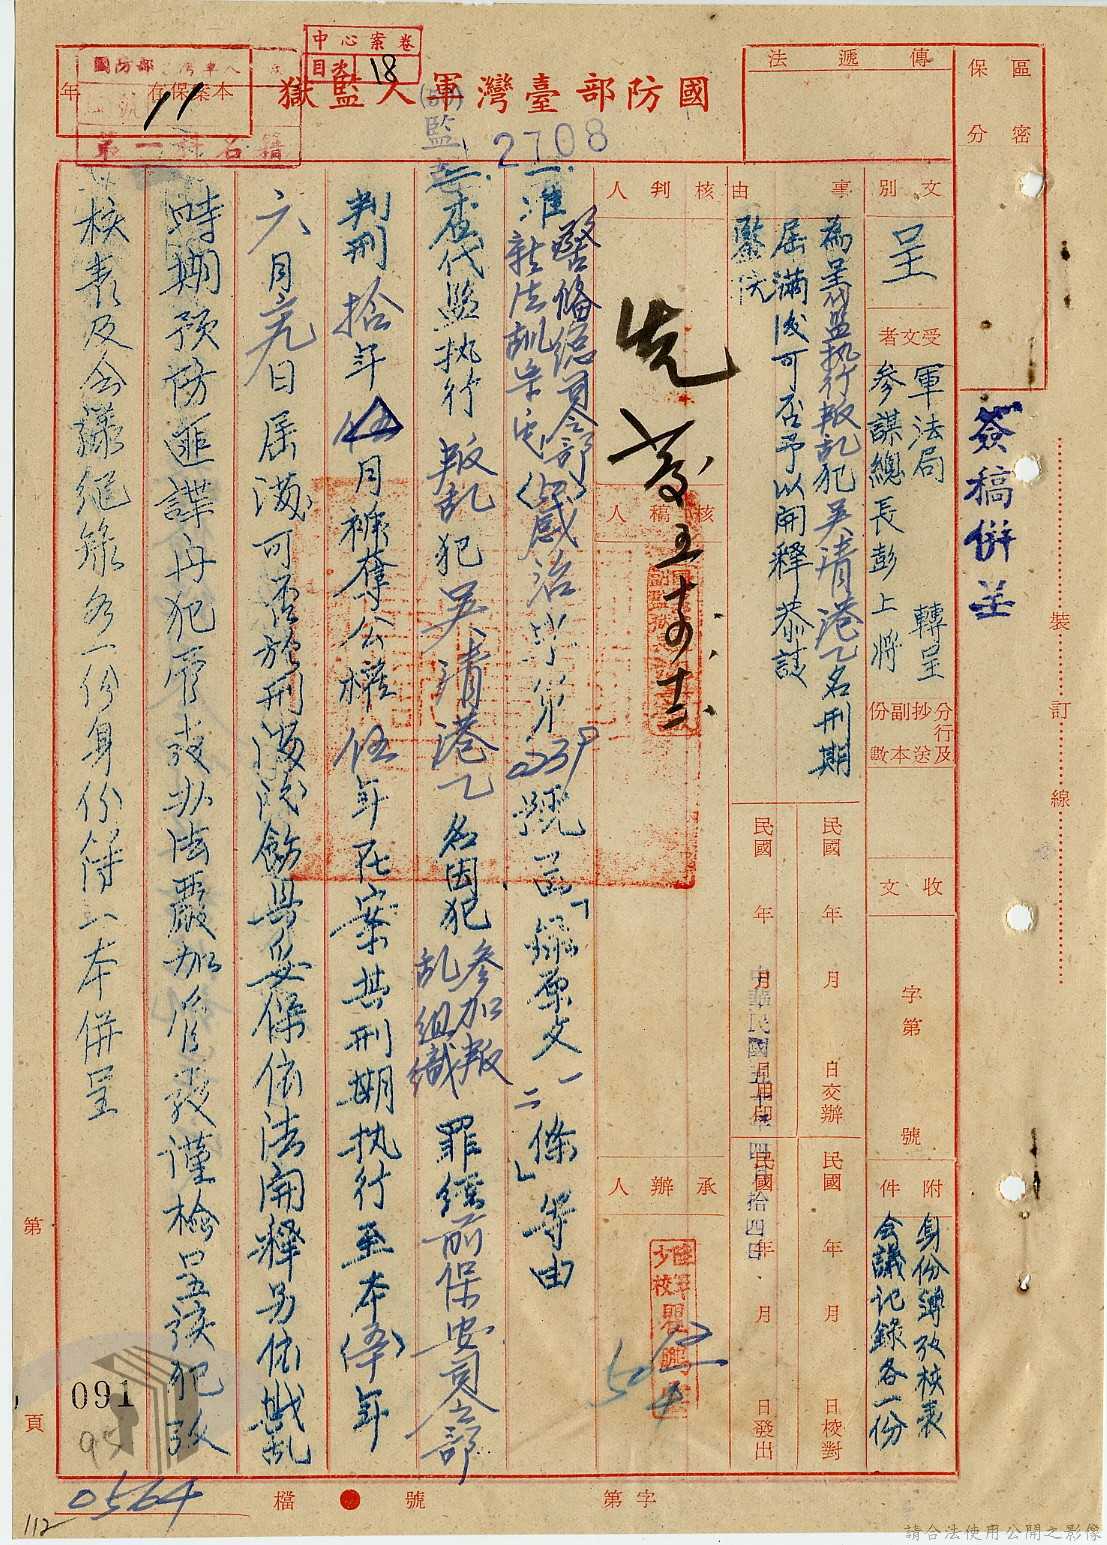 中心案卷
目次 18
國防部臺灣軍人監獄
本案保存 年
11
第一科名籍
2708
保密區分
傳遞法
簽稿併呈
文別
呈
受文者
軍法局 轉呈
參謀總長彭上將
分行及抄送副本份數
收文
字第 號
附件
身份簿考核表
會議記錄各一份
事由
為呈代監執行叛乱犯吳清港乙名刑期
屆滿後可否予以開釋恭請
鑒核
民國 年 月 日交辦
民國 年 月 日校對
民國 年 月 日用印
民國 年 月 日發出
核判人
核稿人
承辦人
一、准警備總司令部
號函「錄原文一二條」等由
二、查代監執行叛乱犯吳清港乙名因犯參加叛乱組織罪經前保安司令部
判刑拾年伍月褫奪公權伍年在案其刑期執行至本年
六月 日屆滿可否於刑滿後飭具妥保依法開釋另依戡乱
時期預防匪諜再犯管教办法嚴加管教謹檢呈該犯考
核表及会議紀錄各一份身份簿一本併呈
裝 訂 線
第 頁
091
95
0564
112
檔 號
字第
請合法使用公開之影像